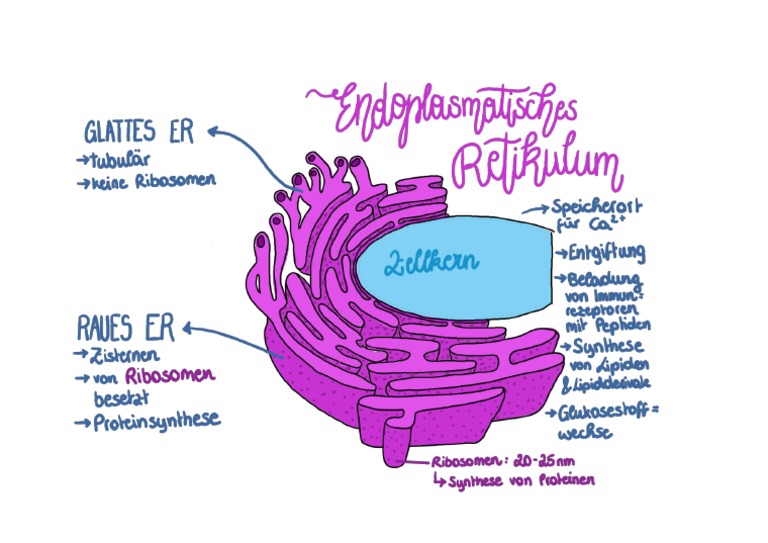 Endoplasmatisches
Retikulum
GLATTES ER
→ tubulär
→ keine Ribosomen
RAUES ER
→ Zisternen
→ von Ribosomen
besetzt
→ Proteinsynthese
Zellkern
→ Speicherort
für Ca²⁺
→ Entgiftung
→ Beladung
von Immun=
rezeptoren
mit Peptiden
→ Synthese
von Lipiden
& Lipidderivate
→ Glukosestoff=
wechse
Ribosomen: 20-25nm
↳ Synthese von Proteinen